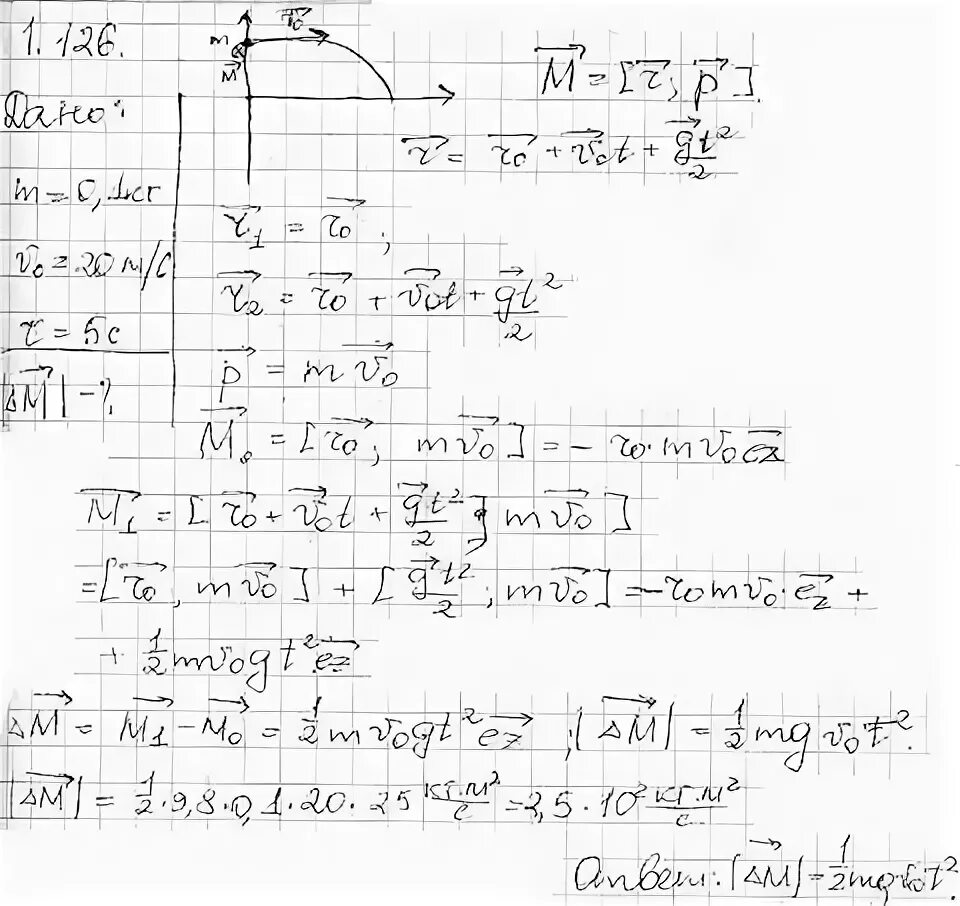 1.126.
m
v⃗₀
M⃗
Дано:
m = 0,1 кг
v₀ = 20 м/с
τ = 5 с
|ΔM⃗| - ?
M⃗ = [r⃗; p⃗].
r⃗ = r⃗₀ + v⃗₀t + g⃗t²/2
r⃗₁ = r⃗₀;
r⃗₂ = r⃗₀ + v⃗₀t + g⃗t²/2
p⃗ = mv⃗₀
M⃗₀ = [r⃗₀; mv⃗₀] = - r₀·mv₀e⃗z
M⃗₁ = [r⃗₀ + v⃗₀t + g⃗t²/2; mv⃗₀]
= [r⃗₀, mv⃗₀] + [g⃗t²/2; mv⃗₀] = -r₀mv₀·e⃗z +
+ 1/2 mv₀gt²e⃗z
ΔM⃗ = M⃗₁ - M⃗₀ = 1/2 mv₀gt²e⃗z; |ΔM⃗| = 1/2 mgv₀t².
|ΔM⃗| = 1/2·9,8·0,1·20·25 кг·м²/с = 2,5·10² кг·м²/с
Ответ: |ΔM⃗| = 1/2 mgv₀t².